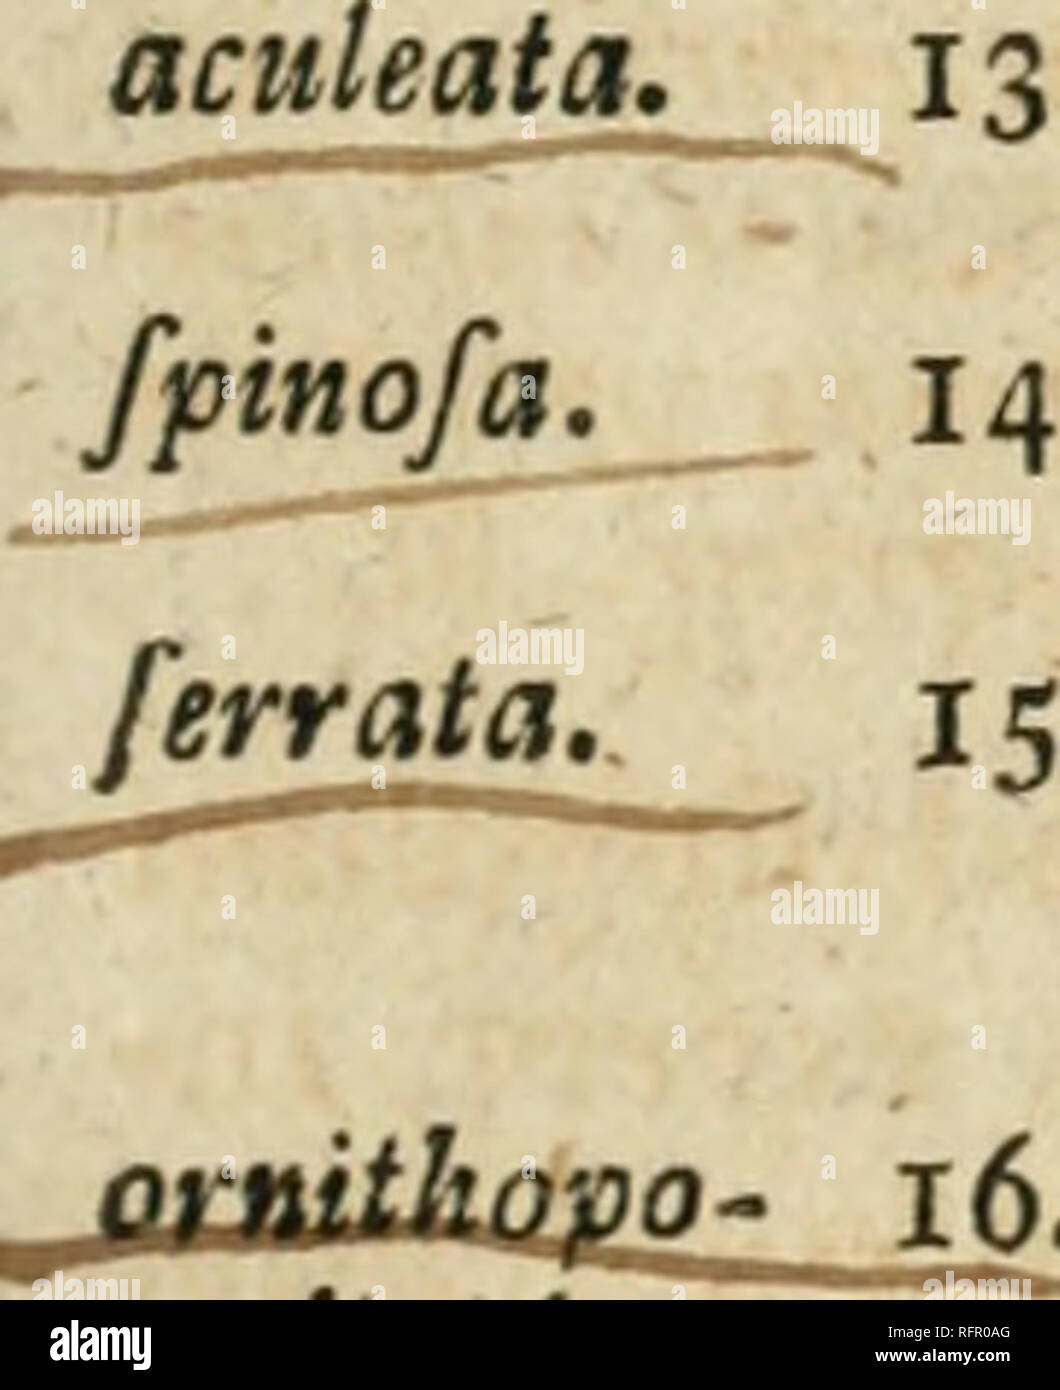 aculeata. 13
ſpinoſa. 14
ſerrata. 15
ornithopo- 16.
alamy
RFR0AG
www.alamy.com